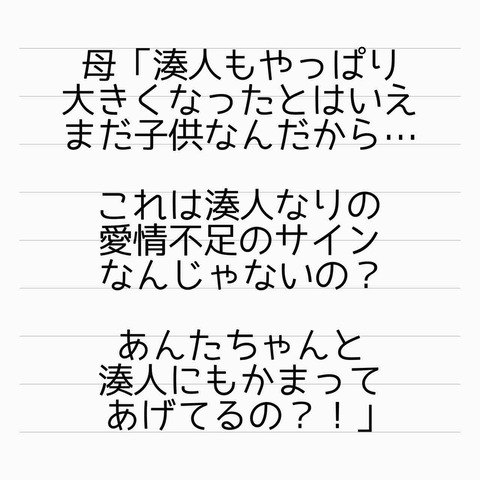 母「湊人もやっぱり
大きくなったとはいえ
まだ子供なんだから…
これは湊人なりの
愛情不足のサイン
なんじゃないの？
あんたちゃんと
湊人にもかまって
あげてるの？！」